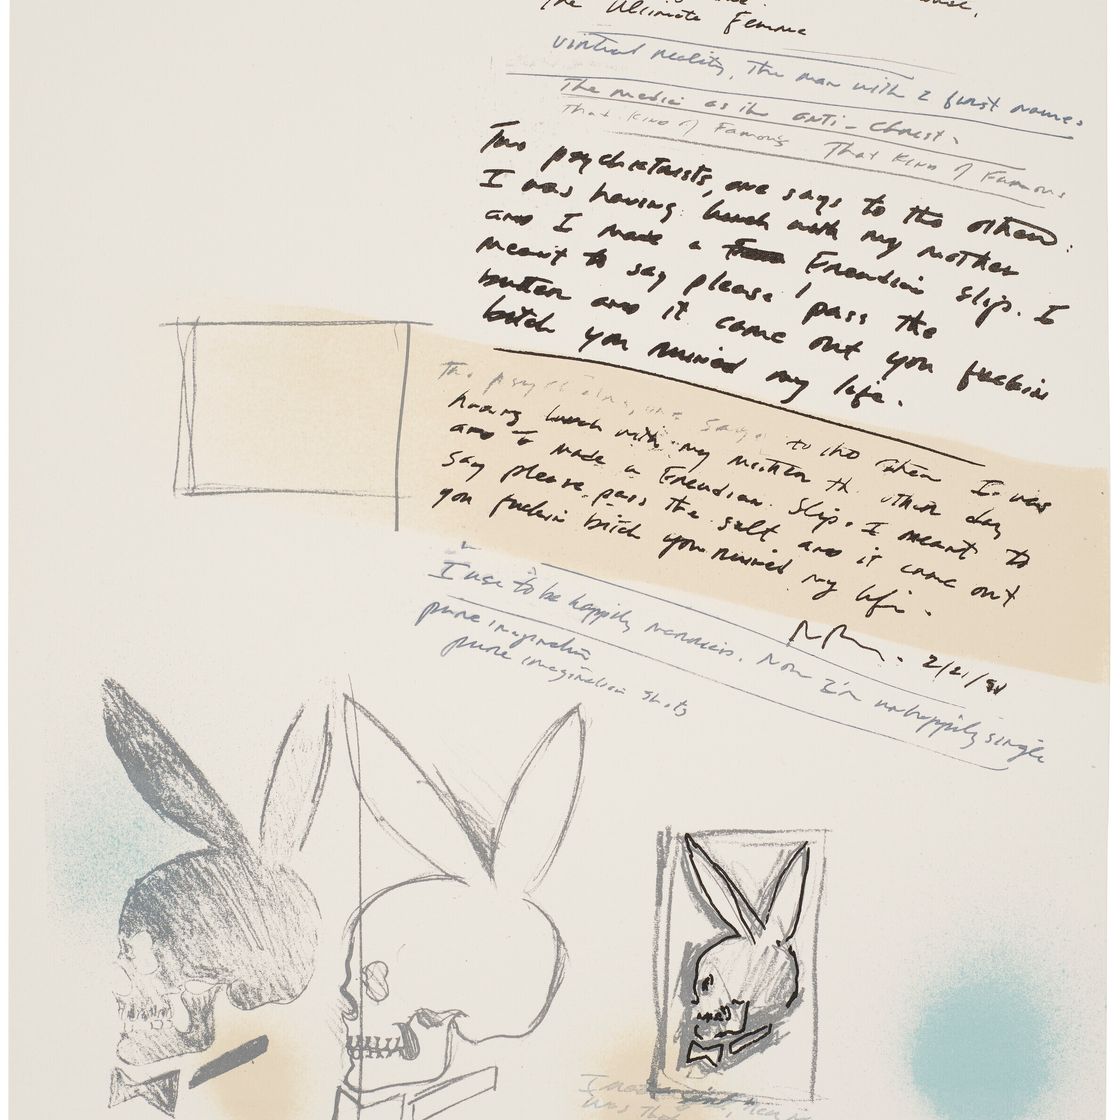 The Ultimate Femme
virtual reality, The man with 2 first names
The media as the anti-Christ.
That Kind of Famous That Kind of Famous
Two psychiatrists, one says to the other:
I was having lunch with my mother
and I made a Freudian slip. I
meant to say please pass the
butter and it came out you fuckin
bitch you ruined my life.
Two psychiatrists, one says to the other I was
having lunch with my mother the other day
and I made a Freudian slip. I meant to
say please pass the salt and it came out
you fuckin bitch you ruined my life.
2/21/91
I use to be happily married. Now I'm unhappily single
pure imagination
pure imagination shots
was that